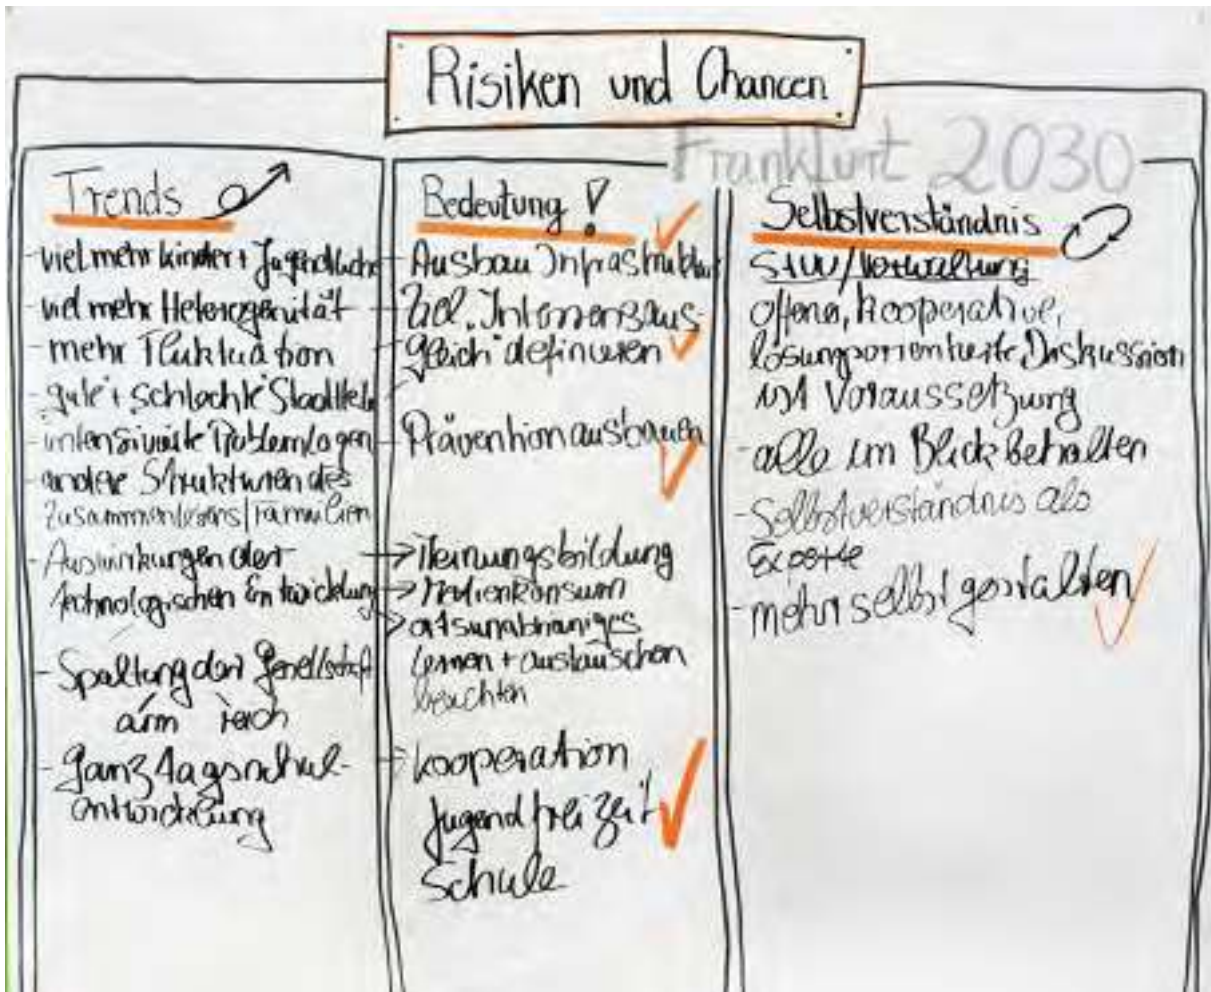 Risiken und Chancen
Frankfurt 2030
Trends
- viel mehr Kinder + Jugendliche
- viel mehr Heterogenität
- mehr Fluktuation
- gute + schlechte Stadtteile
- intensivierte Problemlagen
- andere Strukturen des
Zusammenlebens/Familien
- Auswirkungen der
technologischen Entwicklung
- Spaltung der Gesellschaft
arm reich
- Ganztagsschul-
entwicklung
Bedeutung !
- Ausbau Infrastruktur
- Ziel "Interessensaus-
gleich" definieren
- Prävention ausbauen
→ Meinungsbildung
→ Medienkonsum
→ ortsunabhängiges
lernen + austauschen
beachten
- Kooperation
Jugend frei Zeit
Schule
Selbstverständnis
/Verwaltung
offene, kooperative,
lösungsorientierte Diskussion
ist Voraussetzung
- alle im Blick behalten
- Selbstverständnis als
Experte
- mehr selbst gestalten